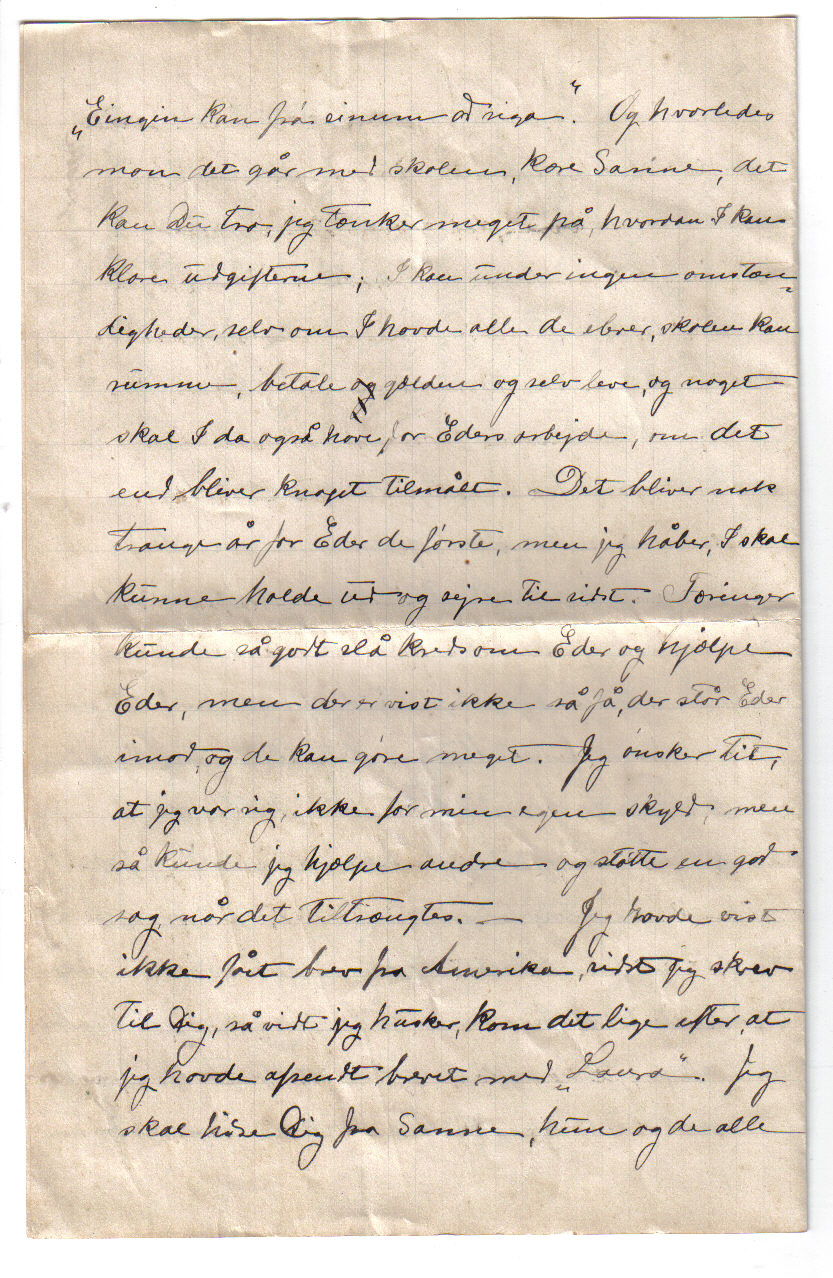 „Eingin kan frá einum að siga“. Og hvorledes
mon det går med skolen, kære Sanne, det
kan Du tro, jeg tænker meget på, hvordan I kan
klare udgifterne; I kan under ingen omstæn-
digheder, selv om I havde alle de elever, skolen kan
rumme, betale og gælden og selv leve, og noget
skal I da også have for Eders arbejde, om det
end bliver knapt tilmålt. Det bliver nok
trange år for Eder de første, men jeg håber, I skal
kunne holde ud og sejre til sidst. Færinger
kunde så godt slå kreds om Eder og hjælpe
Eder, men der er vist ikke så få, der står Eder
imod, og de kan gøre meget. Jeg ønsker tit,
at jeg var rig, ikke for min egen skyld, men
så kunde jeg hjælpe andre og støtte en god
sag, når det tiltrængtes. — Jeg havde vist
ikke fået brev fra Amerika, sidst jeg skrev
til Dig, så vidt jeg husker, kom det lige efter, at
jeg havde afsendt brevet med „Laura“. Jeg
skal hilse Dig fra Sanne, hun og de alle